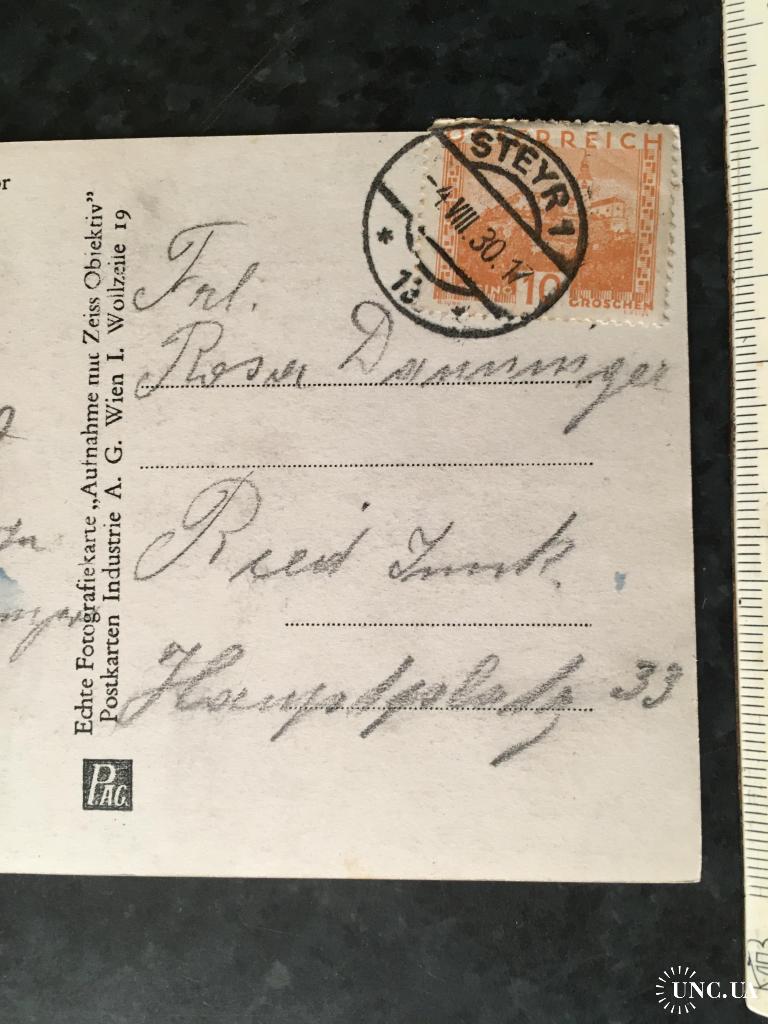 ÖSTERREICH
STEYR 1
-4.VIII.30.17
* 13 *
10
GROSCHEN
Frl.
Rosa Danninger
Ried Innk.
Hauptplatz 33
Echte Fotografiekarte „Aufnahme mit Zeiss Objektiv”
Postkarten Industrie A. G. Wien I. Wollzeile 19
PAG.
UNC.UA